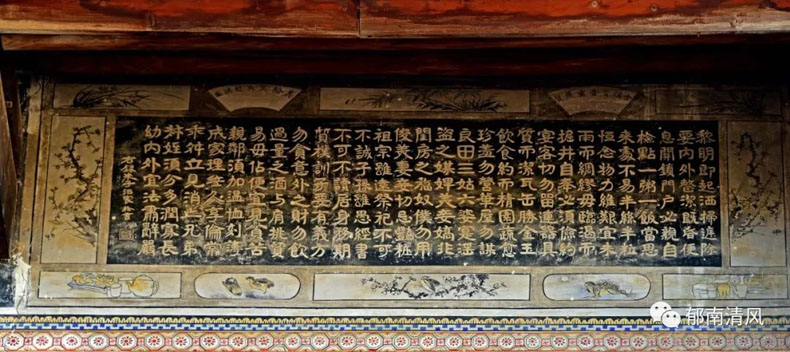 黎明即起洒掃庭除
要内外整潔既昏便
息關鎖門户必親自
檢點一粥一飯當思
来處不易半絲半縷
恒念物力維艱宜未
雨而綢繆毋臨渴而
掘井自奉必須儉約
宴客切勿留連器具
質而潔瓦缶勝金玉
飲食約而精園蔬愈
珍羞勿營華屋勿謀
良田三姑六婆實淫
盗之媒婢美妾嬌非
閨房之福奴僕勿用
俊美妻妾切忌艷粧
祖宗雖遠祭祀不可
不誠子孫雖愚經書
不可不讀居身務期
質樸訓子要有義方
勿貪意外之財勿飲
過量之酒与肩挑貿
易毋佔便宜見貧苦
親鄰須加温恤刻薄
成家理無久享倫常
乖舛立見消亡兄弟
叔姪須分多潤寡長
幼内外宜法肅辭嚴
郁南清风